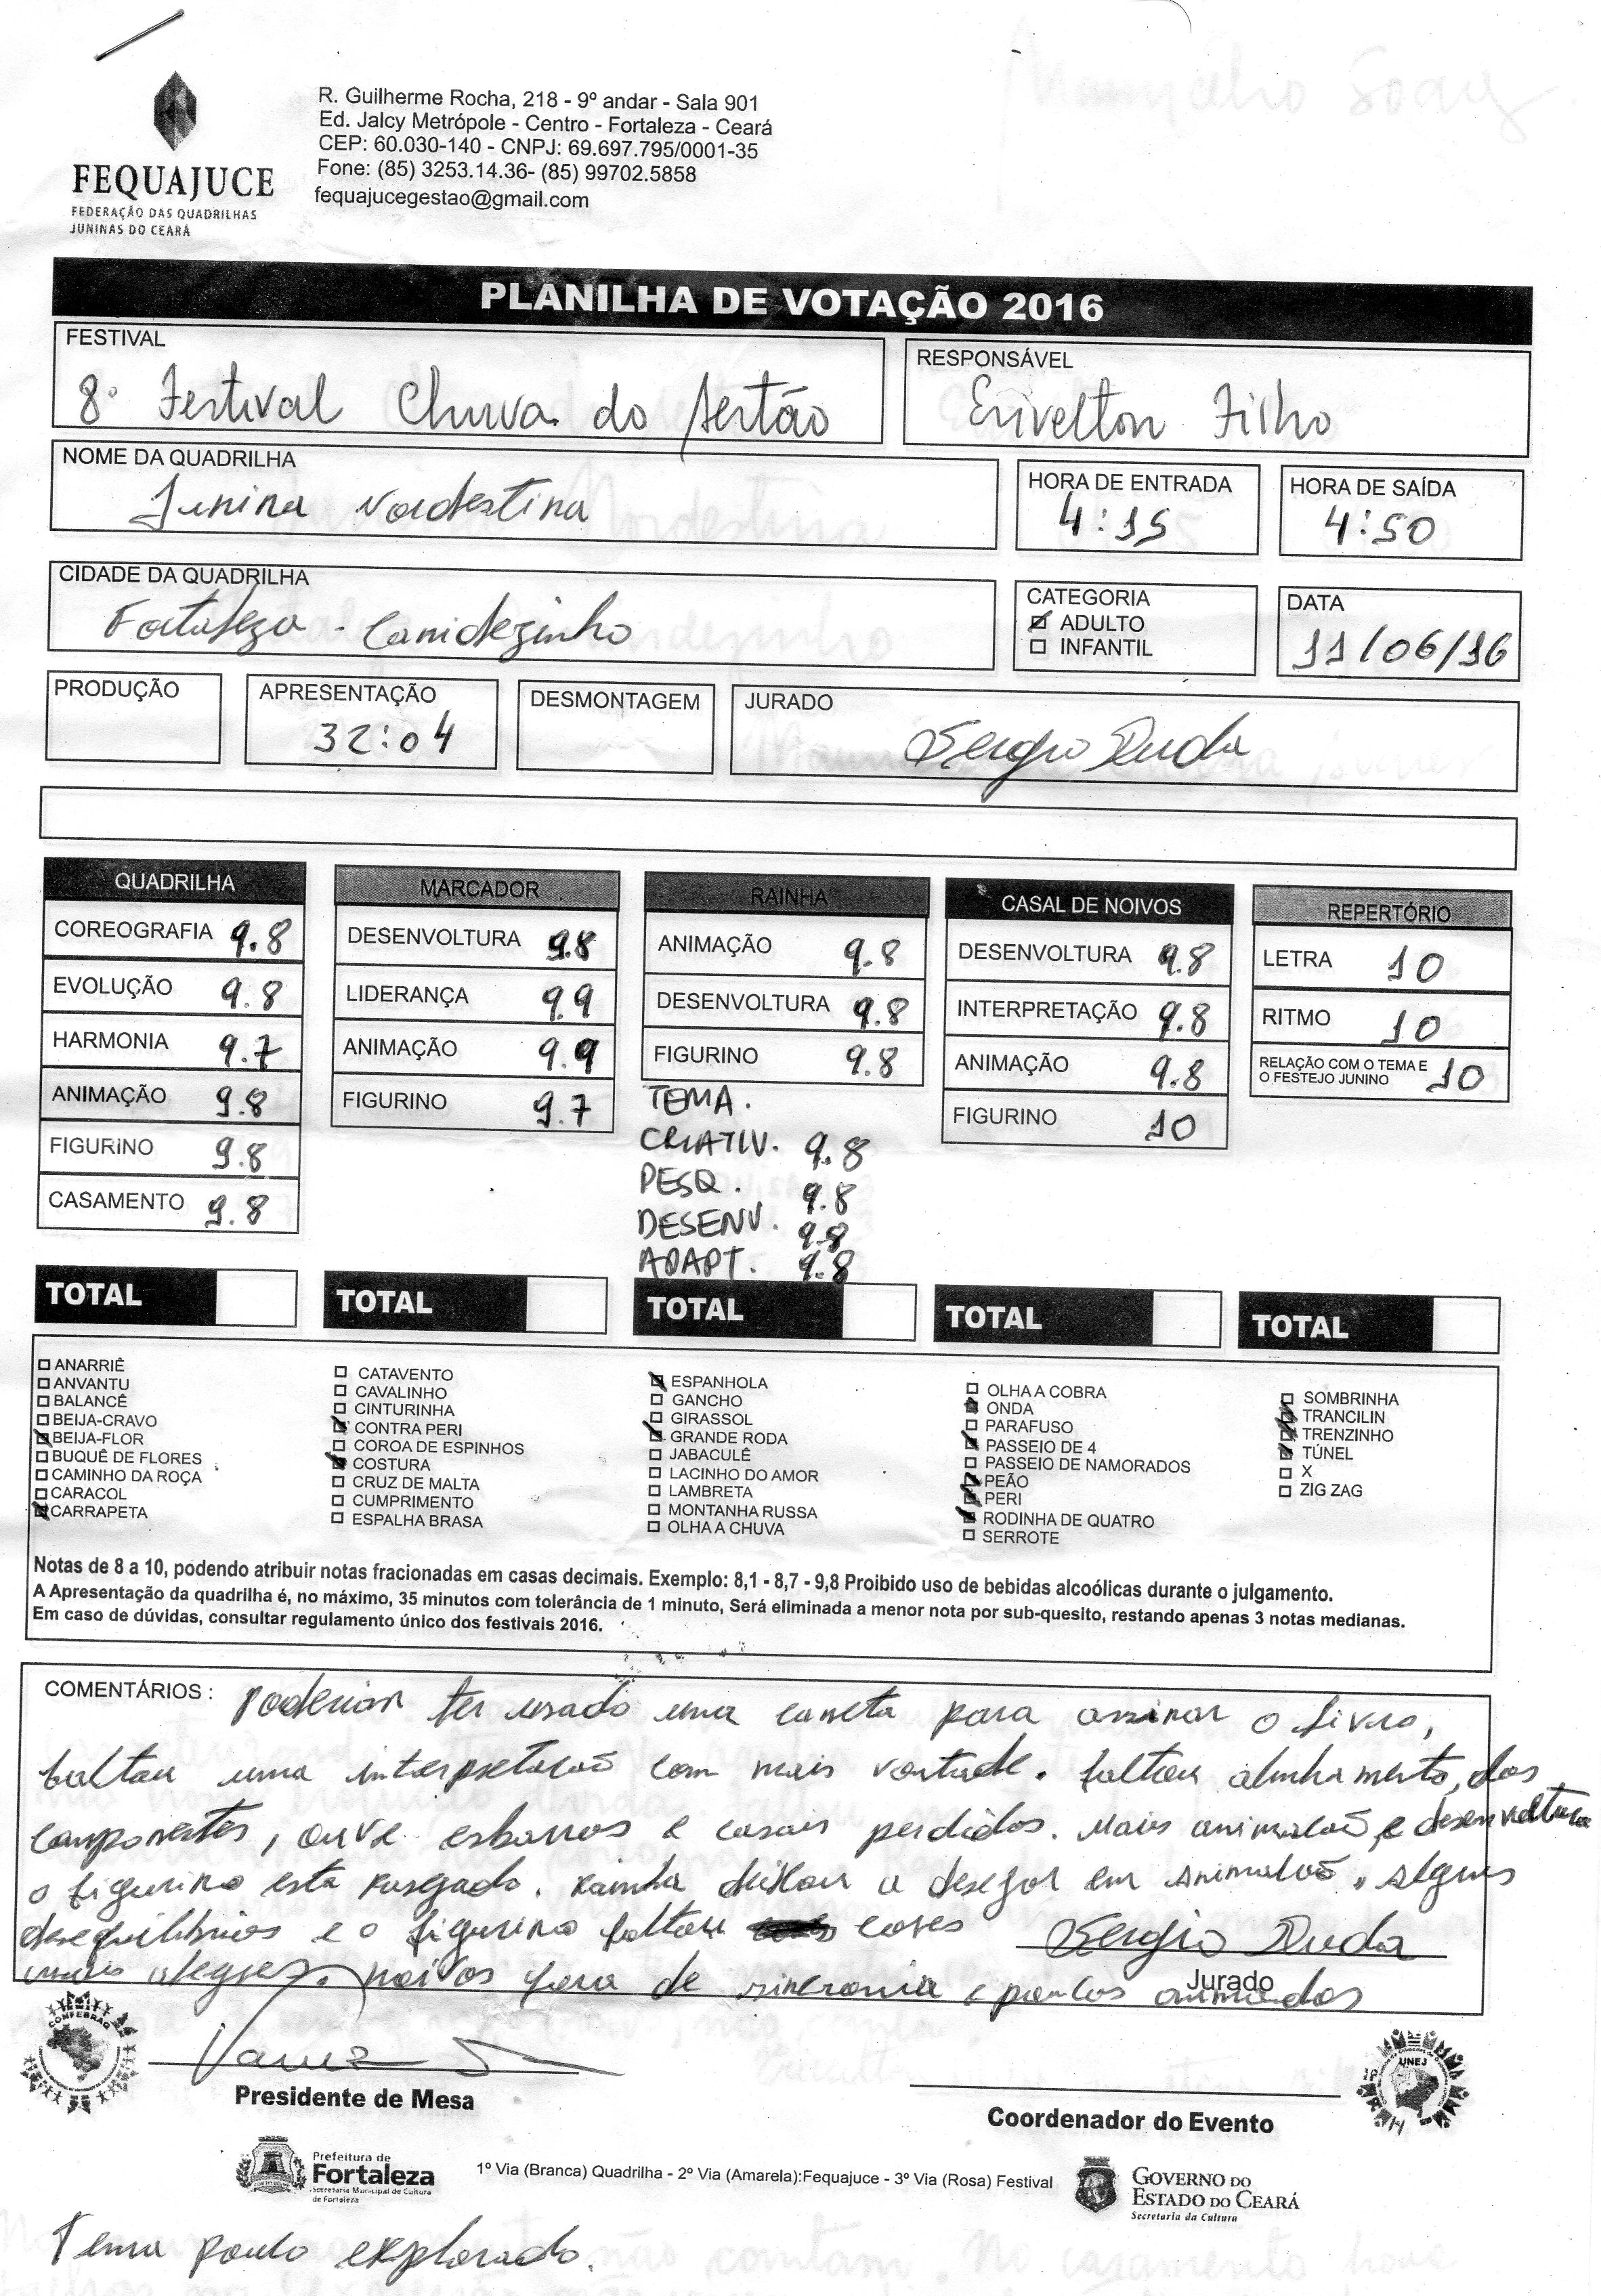 R. Guilherme Rocha, 218 - 9º andar - Sala 901
Ed. Jalcy Metrópole - Centro - Fortaleza - Ceará
CEP: 60.030-140 - CNPJ: 69.697.795/0001-35
Fone: (85) 3253.14.36- (85) 99702.5858
fequajucegestao@gmail.com
FEQUAJUCE
FEDERAÇÃO DAS QUADRILHAS
JUNINAS DO CEARÁ
PLANILHA DE VOTAÇÃO 2016
FESTIVAL
8º Festival Chuva do Sertão
RESPONSÁVEL
Erivelton Filho
NOME DA QUADRILHA
Junina Nordestina
HORA DE ENTRADA
4:15
HORA DE SAÍDA
4:50
CIDADE DA QUADRILHA
Fortaleza - Canidezinho
CATEGORIA
ADULTO
INFANTIL
DATA
11/06/16
PRODUÇÃO
APRESENTAÇÃO
32:04
DESMONTAGEM
JURADO
Sergio Duda
QUADRILHA
COREOGRAFIA 9.8
EVOLUÇÃO 9.8
HARMONIA 9.7
ANIMAÇÃO 9.8
FIGURINO 9.8
CASAMENTO 9.8
TOTAL
MARCADOR
DESENVOLTURA 9.8
LIDERANÇA 9.9
ANIMAÇÃO 9.9
FIGURINO 9.7
TOTAL
RAINHA
ANIMAÇÃO 9.8
DESENVOLTURA 9.8
FIGURINO 9.8
TEMA.
CRIATIV. 9.8
PESQ. 9.8
DESENV. 9.8
ADAPT. 9.8
TOTAL
CASAL DE NOIVOS
DESENVOLTURA 9.8
INTERPRETAÇÃO 9.8
ANIMAÇÃO 9.8
FIGURINO 10
TOTAL
REPERTÓRIO
LETRA 10
RITMO 10
RELAÇÃO COM O TEMA E
O FESTEJO JUNINO 10
TOTAL
ANARRIÊ
ANVANTU
BALANCÊ
BEIJA-CRAVO
BEIJA-FLOR
BUQUÊ DE FLORES
CAMINHO DA ROÇA
CARACOL
CARRAPETA
CATAVENTO
CAVALINHO
CINTURINHA
CONTRA PERI
COROA DE ESPINHOS
COSTURA
CRUZ DE MALTA
CUMPRIMENTO
ESPALHA BRASA
ESPANHOLA
GANCHO
GIRASSOL
GRANDE RODA
JABACULÊ
LACINHO DO AMOR
LAMBRETA
MONTANHA RUSSA
OLHA A CHUVA
OLHA A COBRA
ONDA
PARAFUSO
PASSEIO DE 4
PASSEIO DE NAMORADOS
PEÃO
PERI
RODINHA DE QUATRO
SERROTE
SOMBRINHA
TRANCILIN
TRENZINHO
TÚNEL
X
ZIG ZAG
Notas de 8 a 10, podendo atribuir notas fracionadas em casas decimais. Exemplo: 8,1 - 8,7 - 9,8 Proibido uso de bebidas alcoólicas durante o julgamento.
A Apresentação da quadrilha é, no máximo, 35 minutos com tolerância de 1 minuto, Será eliminada a menor nota por sub-quesito, restando apenas 3 notas medianas.
Em caso de dúvidas, consultar regulamento único dos festivais 2016.
COMENTÁRIOS : Poderiam ter usado uma caneta para assinar o livro,
faltou uma interpretação com mais vontade. faltou alinhamento, dos
componentes, ouve esbarros e casais perdidos. Mais animação e desenvoltura
o figurino esta rasgado. Rainha deixou a desejar em animação, alguns
desequilibrios e o figurino faltou cores
mais alegres. noivos fora de sincronia e poucos animados
Sergio Duda
Jurado
CONFEBRAQ
Presidente de Mesa
Coordenador do Evento
UNEJ
Prefeitura de
Fortaleza
Secretaria Municipal de Cultura
de Fortaleza
1º Via (Branca) Quadrilha - 2º Via (Amarela):Fequajuce - 3º Via (Rosa) Festival
GOVERNO DO
ESTADO DO CEARÁ
Secretaria da Cultura
Tema pouco explorado.